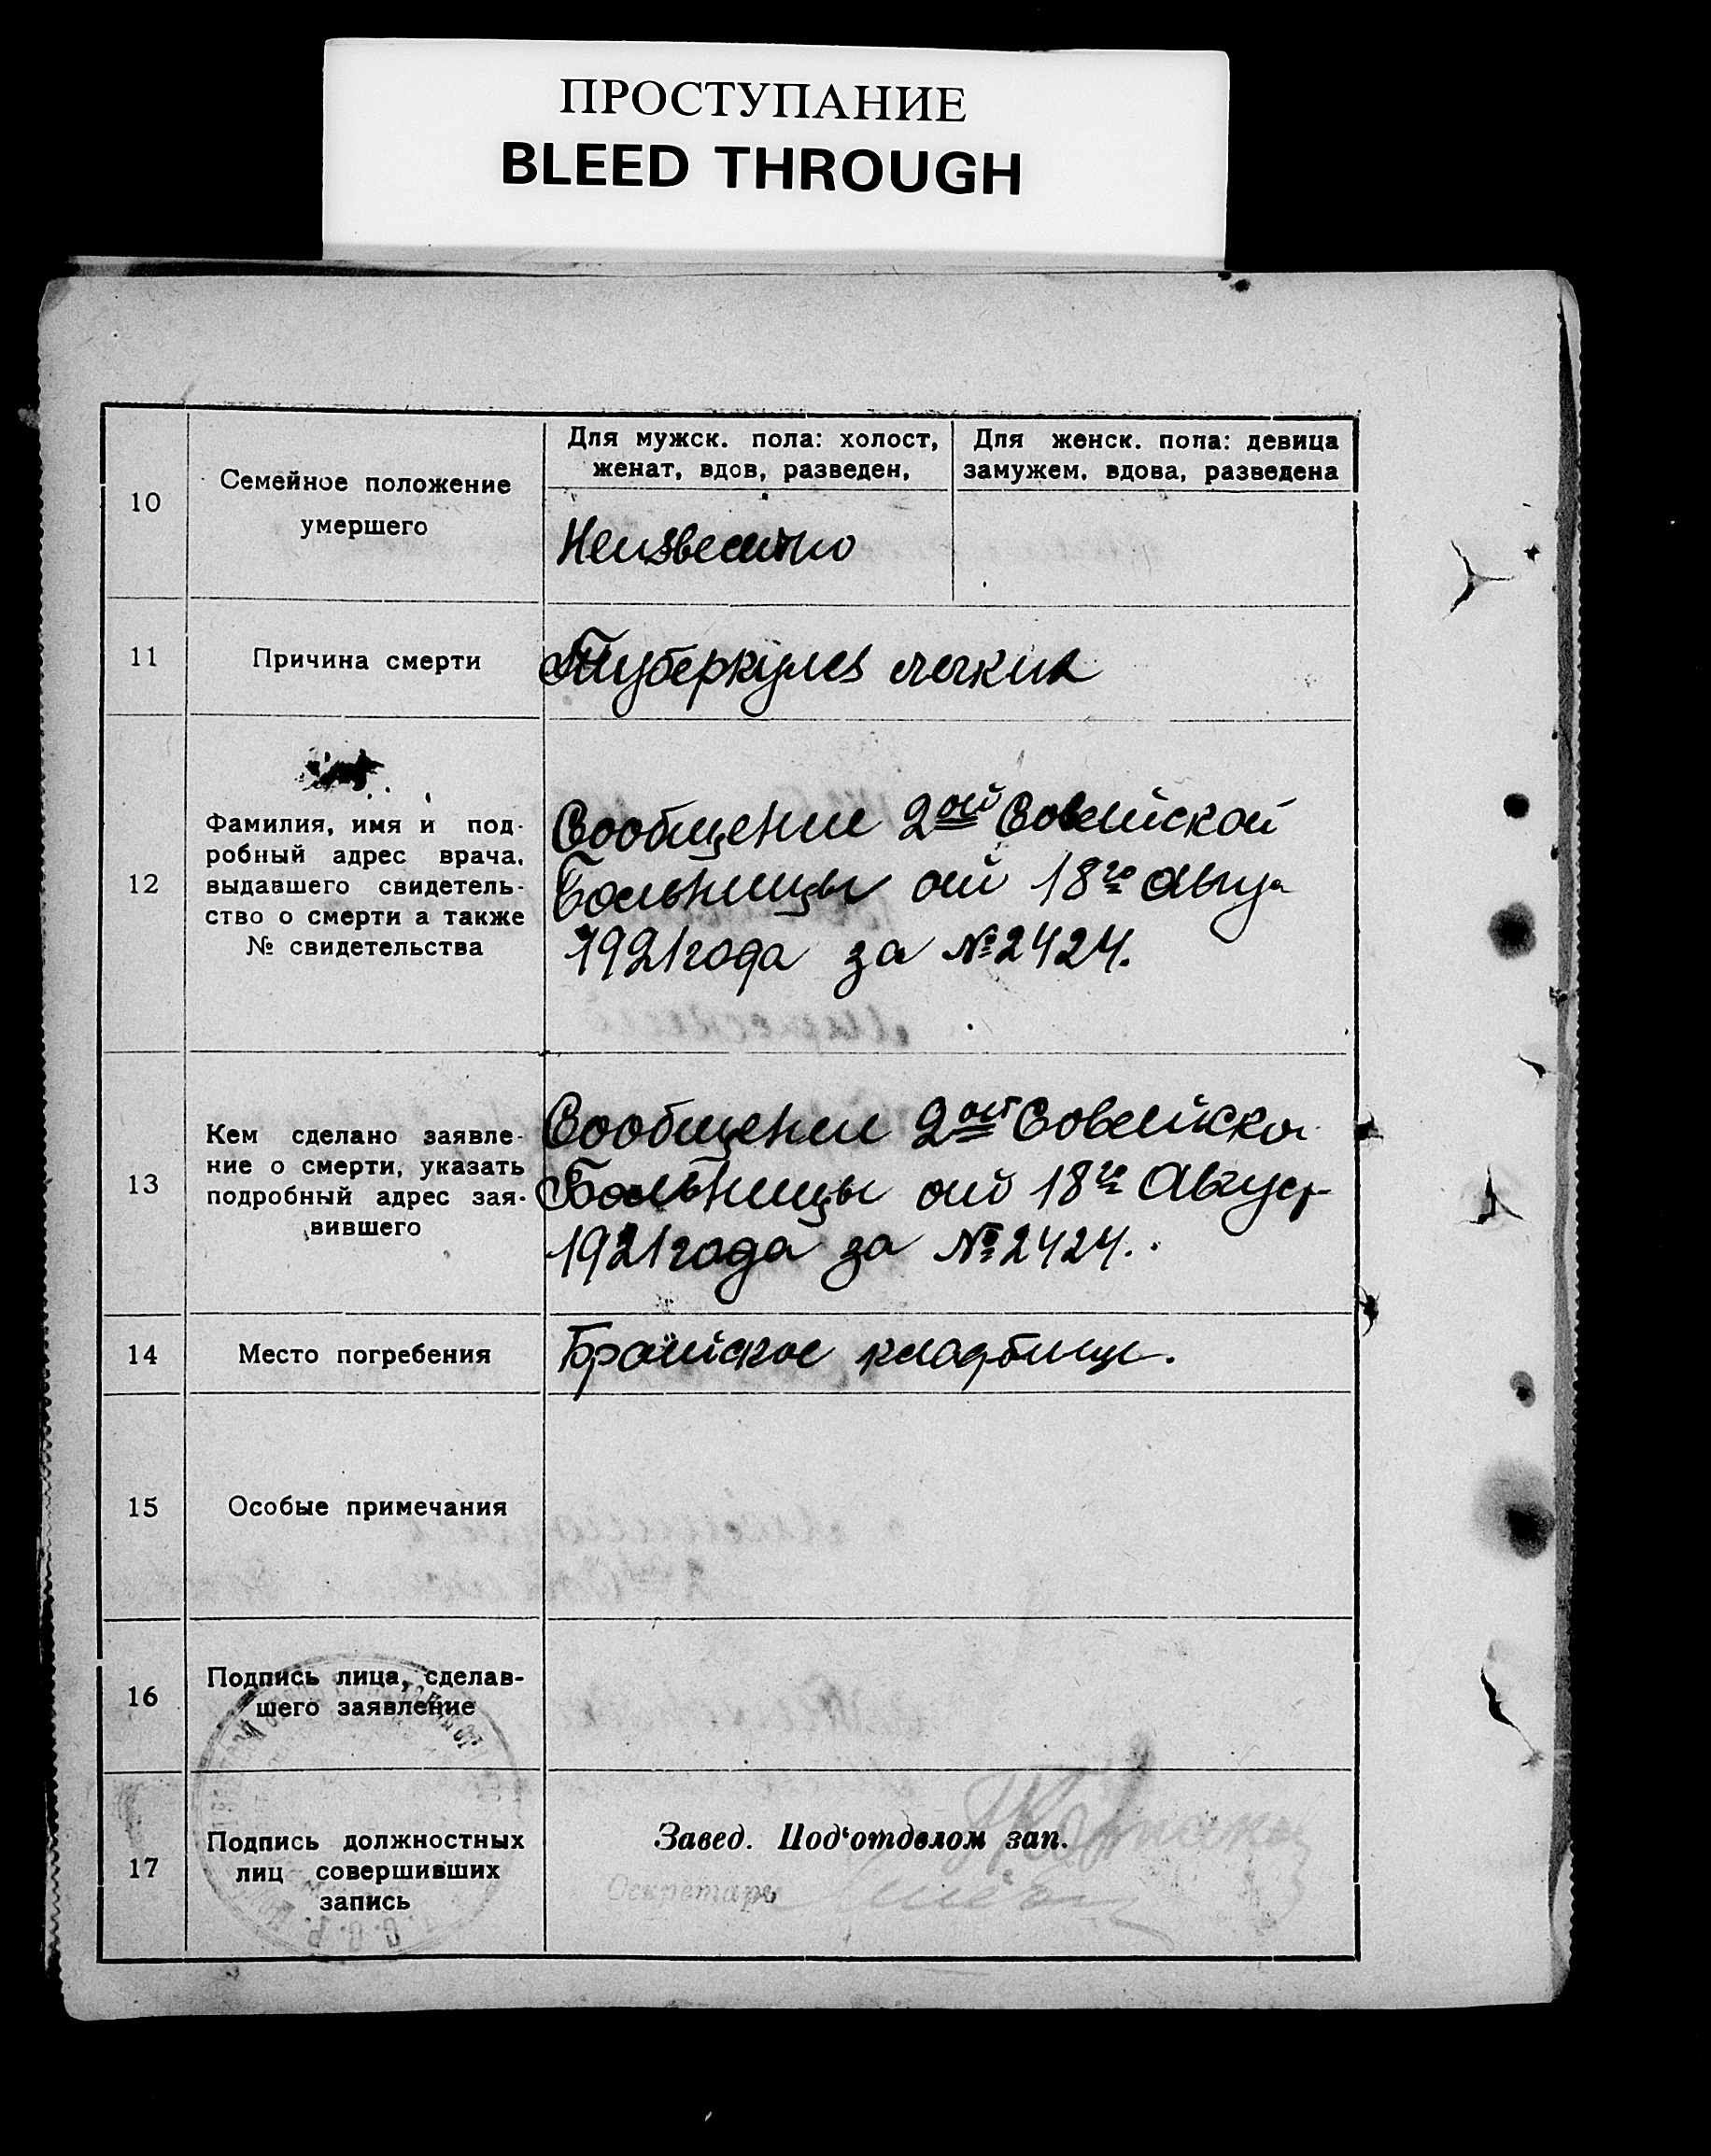 ПРОСТУПАНИЕ
BLEED THROUGH
10
Семейное положение
умершего
Для мужск. пола: холост,
женат, вдов, разведен,
Для женск. пола: девица
замужем, вдова, разведена
Неизвестно
11
Причина смерти
Туберкулез легких
12
Фамилия, имя и под-
робный адрес врача,
выдавшего свидетель-
ство о смерти а также
№ свидетельства
Сообщение 2ой Советской
Больницы от 18го Авгу
1921 года за № 2424.
13
Кем сделано заявле-
ние о смерти, указать
подробный адрес зая-
вившего
Сообщение 2ой Советско
Больницы от 18го Август
1921 года за № 2424.
14
Место погребения
Братское кладбище.
15
Особые примечания
16
Подпись лица, сделав-
шего заявление
17
Подпись должностных
лиц совершивших
запись
Завед. Под'отделом зап.
Секретарь